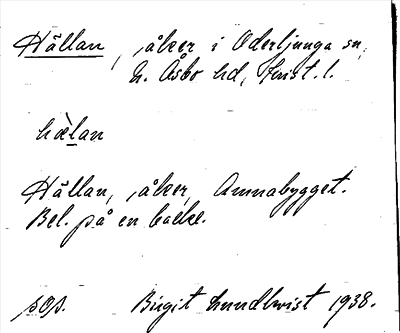 Hällan, åker i Oderljunga sn,
N. Åsbo hd, Krist. l.
hæ̀lan
Hällan, åker, Annabygget.
Bel. på en backe.
pop. Birgit Lundkvist 1938.